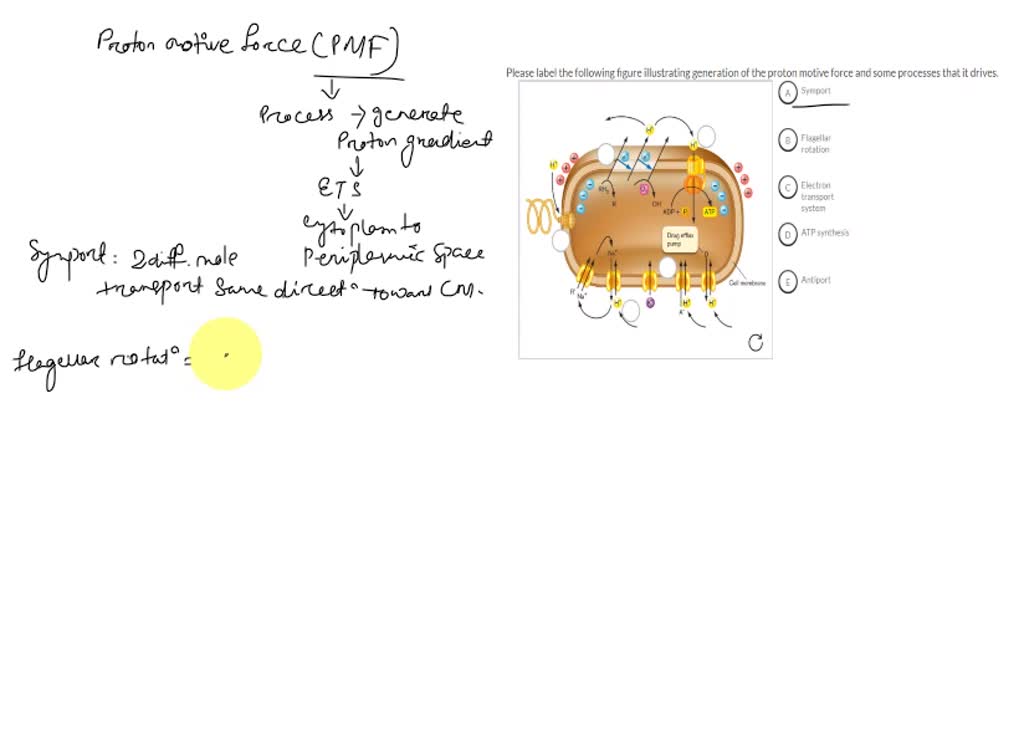 Proton motive force (PMF)
Process → generate
Proton gradient
ETS
cytoplasm to
Periplasmic space
Symport: 2 diff. mole
transport same direct° toward CM.
flagellar rotat° =
Please label the following figure illustrating generation of the proton motive force and some processes that it drives.
A Symport
B Flagellar
rotation
C Electron
transport
system
D ATP synthesis
E Antiport
H+
H+
H+
RH2
R
OH
ADP + P
ATP
Drug efflux
pump
Na+
D
Cell membrane
R
Na+
H+
H+
H+
A-